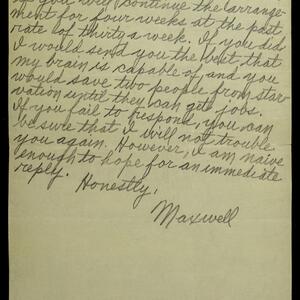 if you will continue the arrange-
ment for four weeks at the past
rate of thirty a week. If you did
I would send you the best that
my brain is capable of and you
would save two people from star-
vation until they can get jobs.
If you fail to respond, you can
be sure that I will not trouble
you again. However, I am naive
enough to hope for an immediate
reply.
Honestly,
Maxwell